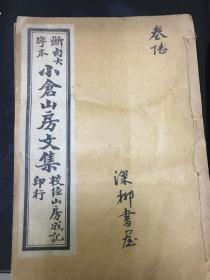 卷陸
深柳書屋
斷句大
字本
小倉山房文集
校經山房成記
印行